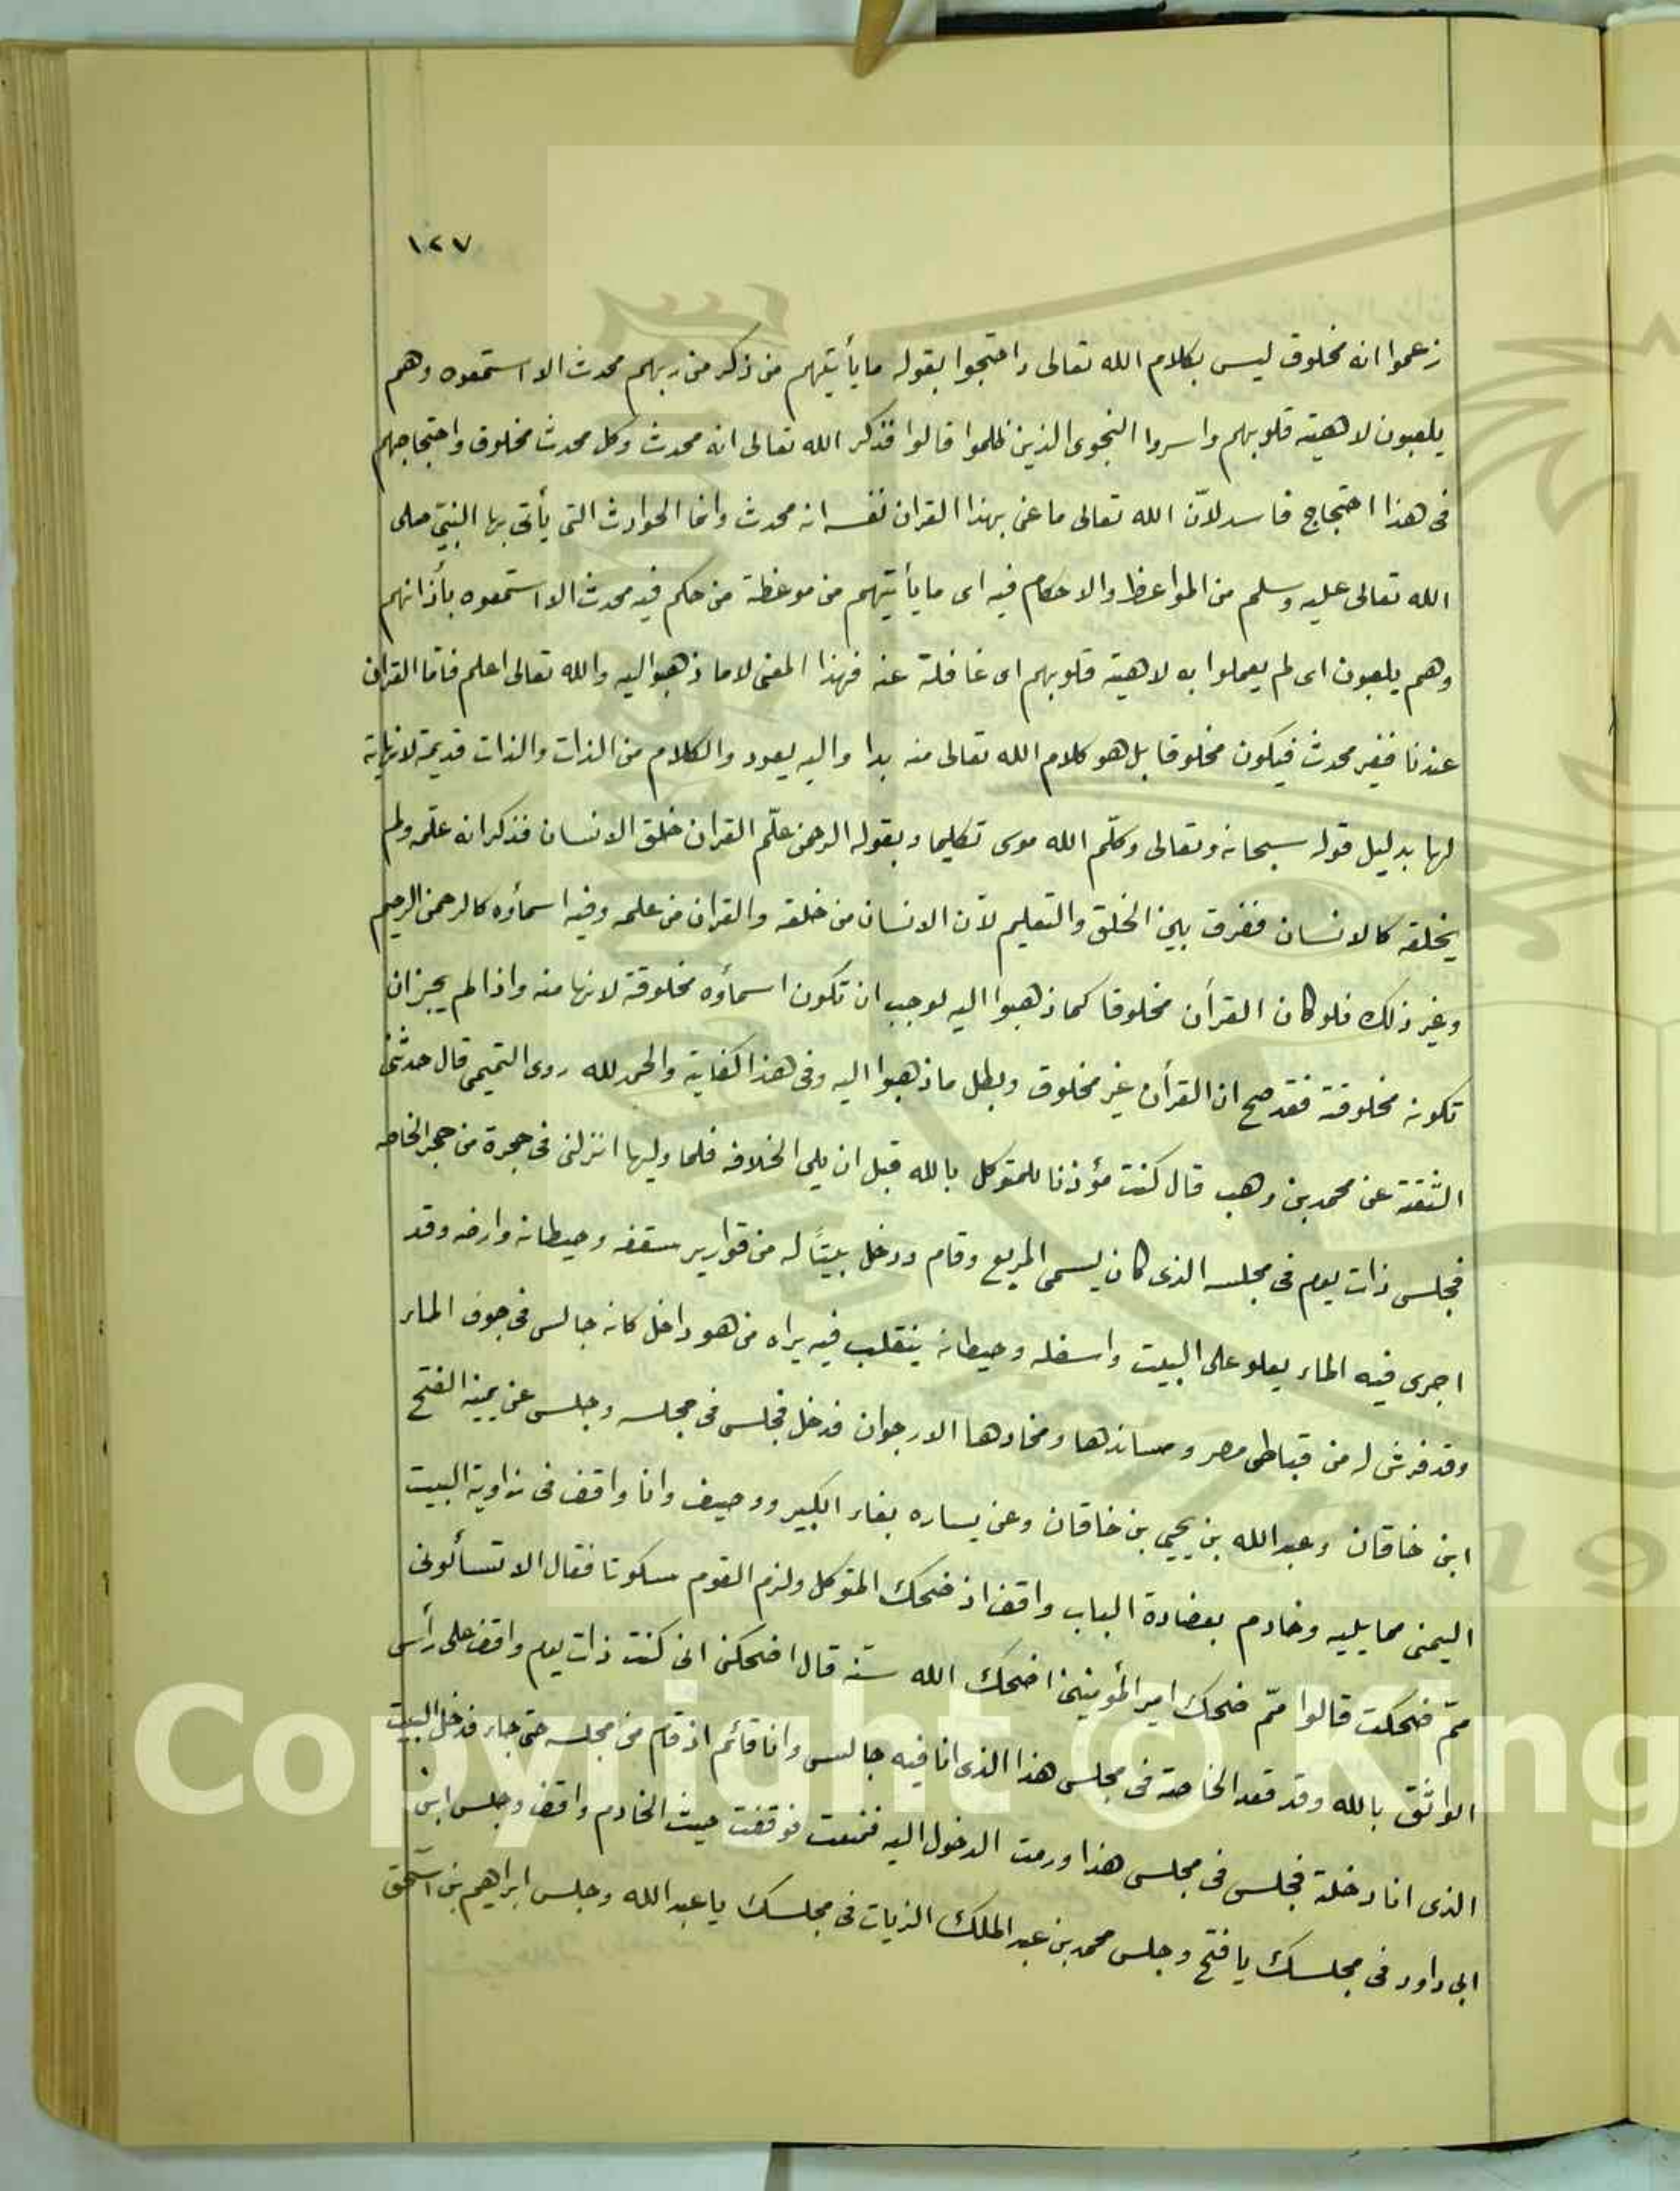 ١٢٧
زعموا انه مخلوق ليس بكلام الله تعالى واحتجوا بقوله ما يأتيهم من ذكر من ربهم محدث الا استمعوه وهم
يلعبون لاهية قلوبهم واسروا النجوى الذين ظلموا قالوا فذكر الله تعالى انه محدث وكل محدث مخلوق واحتجاجهم
فى هذا احتجاج فاسد لانّ الله تعالى ما عنى بهذا القران نفسه انه محدث وانما الحوادث التى يأتى بها النبيّ صلى
الله تعالى عليه وسلم من المواعظ والاحكام فيه اى ما يأتيهم من موعظة من حكم فيه محدث الا استمعوه بأذانهم
وهم يلعبون اى لم يعملوا به لاهية قلوبهم اى غافلة عنه فهذا المعنى لا ما ذهبوا اليه والله تعالى اعلم فامّا القران
عندنا فغير محدث فيكون مخلوقا بل هو كلام الله تعالى منه بدا واليه يعود والكلام من الذات والذات قديمة لانهاية
لها بدليل قوله سبحانه وتعالى وكلّم الله موسى تكليما وبقوله الرحمن علّم القران خلق الانسان فذكر انه علّمه ولم
يخلقه كالانسان ففرق بين الخلق والتعليم لانّ الانسان من خلقه والقران من علمه وفيه اسمأوه كالرحمن الرحيم
وغير ذلك فلو كان القرأن مخلوقا كما ذهبوا اليه لوجب ان تكون اسمأوه مخلوقة لانها منه واذا لم يجز ان
تكون مخلوقة فقد صح ان القرأن غير مخلوق وبطل ما ذهبوا اليه وفى هذا كفاية والحمد لله روى التميمى قال حدثنى
الثقة عن محمد بن وهب قال كنت مؤذنا للمتوكل بالله قبل ان يلى الخلافه فلما وليها انزلنى فى حجرة من حجر الخاصه
فجلس ذات يوم فى مجلسه الذى كان يسمى المربع وقام ودخل بيتًا له من قوارير سقفه وحيطانه وارضه وقد
اجرى فيه الماء يعلو على البيت واسفله وحيطانه ينقلب فيه يراه من هو داخل كانه جالس فى جوف الماء
وقد فرش له من قباطى مصر ومساندها ومخادها الارجوان فدخل فجلس فى مجلسه وجلس عن يمينه الفتح
ابن خاقان وعبد الله بن يحيى بن خاقان وعن يساره بغاء الكبير ووصيف وانا واقف فى زاوية البيت
اليمنى مما يليه وخادم بعضادة الباب واقف اذ ضحك المتوكل ولزم القوم سكوتا فقال الا تسألونى
ممّ ضحكت قالوا ممّ ضحك امير المأومنين اضحك الله سنّه قال اضحكنى انى كنت ذات يوم واقف على رأس
الواثق بالله وقد قعد الخاصة فى مجلس هذا الذى انا فيه جالس وانا قائم اذ قام من مجلسه حتى جاء فدخل البيت
الذى انا دخلته فجلس فى مجلس هذا ورمت الدخول اليه فمنعت فوقفت حيث الخادم واقف وجلس ابن
ابى داود فى مجلسك يا فتح وجلس محمد بن عبد الملك الزيات فى مجلسك يا عبد الله وجلس ابراهيم بن اسحق
Copyright © King